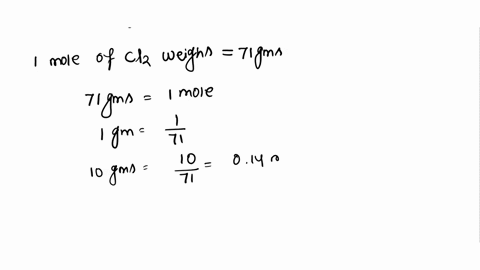 1 mole of Cl2 weighs = 71gms
71gms = 1 mole
1 gm = 1/71
10 gms = 10/71 = 0.14